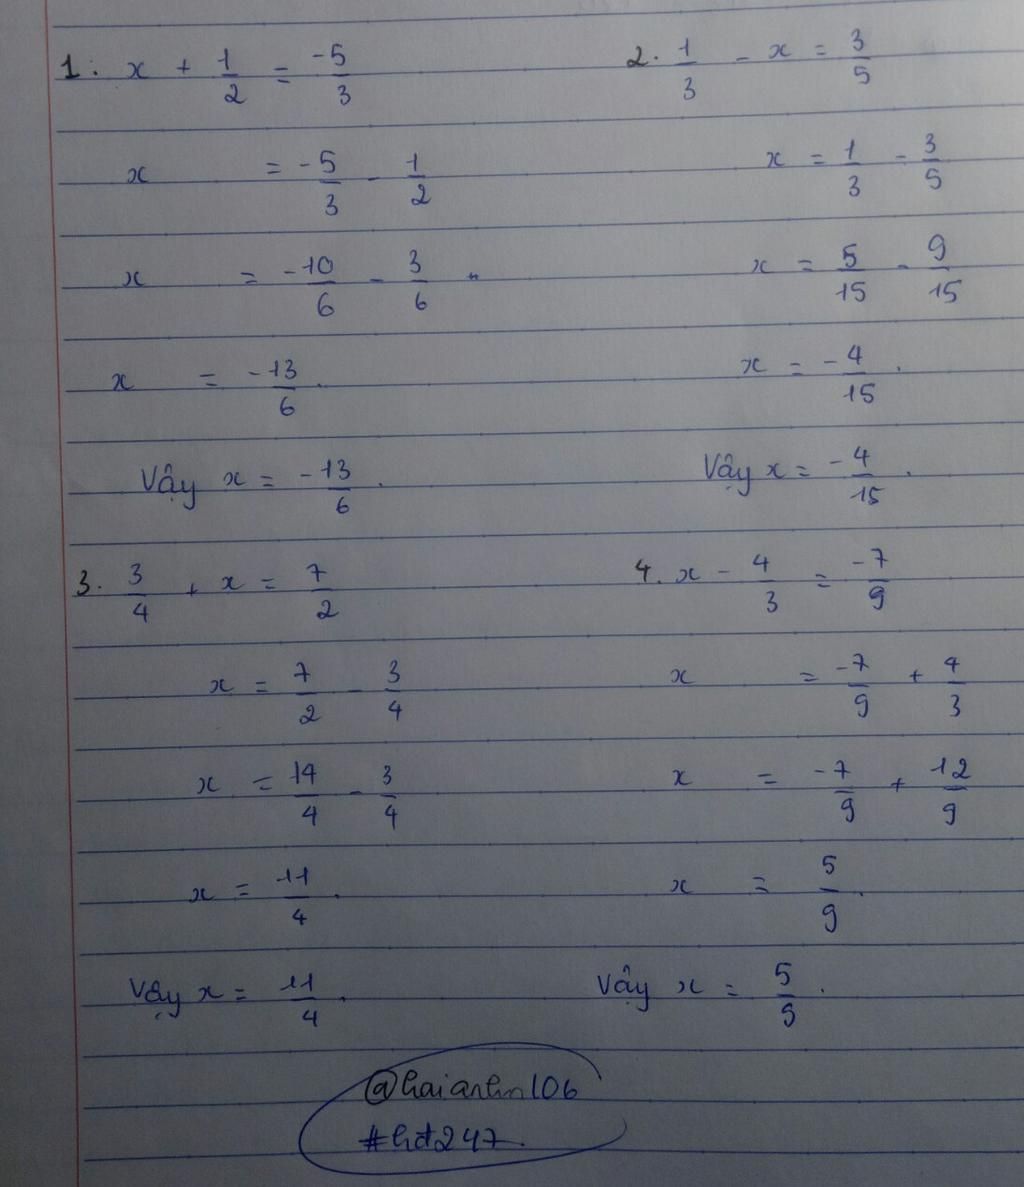 1. x + 1/2 = -5/3
x = -5/3 - 1/2
x = -10/6 - 3/6
x = -13/6.
Vậy x = -13/6.
2. 1/3 - x = 3/5
x = 1/3 - 3/5
x = 5/15 - 9/15
x = -4/15.
Vậy x = -4/15.
3. 3/4 + x = 7/2
x = 7/2 - 3/4
x = 14/4 - 3/4
x = 11/4.
Vậy x = 11/4.
4. x - 4/3 = -7/9
x = -7/9 + 4/3
x = -7/9 + 12/9
x = 5/9.
Vậy x = 5/9.
@haianhn106
#hđ247